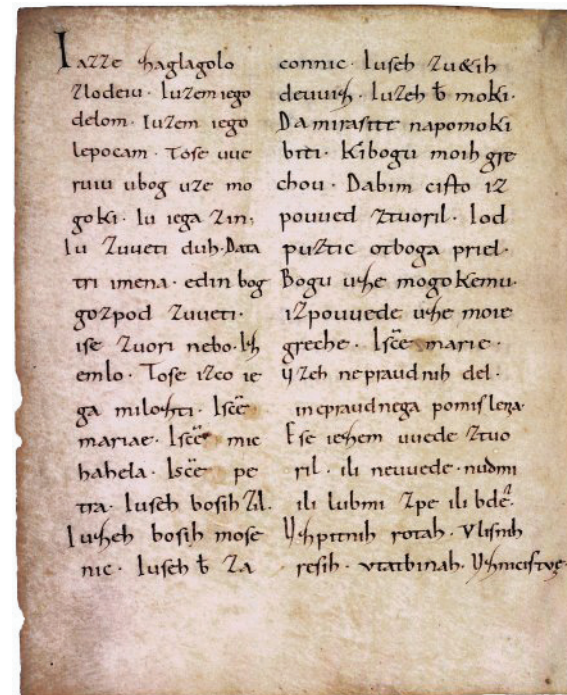 Iazze zaglagolo
zlodeiu. Iuzem iego
delom. Iuzem iego
lepocam. Tose uue
ruiu ubog uze mo
goki. Iu iega zin,
Iu zuueti duh. Data
tri imena. edin bog
gozpod zuueti.
ise zuori nebo. Iz
emlo. Tose izco ie
ga milozti. Isc̄e
mariae. Isc̄e mic
hahela. Isc̄e pe
tra. Iuseh bosih zil.
Iuzeh bosih mose
nic. Iuseh ƀ za
connic. Iuseh zu&ih
deuuiz. Iuzeh ƀ moki.
Da mirasite napomoki
biti. Kibogu moih gre
chou. Dabim cisto iz
pouued ztuoril. Iod
puztic otboga priel.
Bogu uze mogokemu.
izpouuede uze moie
greche. Isc̄e marie.
uzeh nepraudnih del.
inepraudnega pomislera.
Ese iezem uuede ztuo
ril. ili neuuede. nudmi
ili lubmi zpe ili bdē.
Uzpitnih rotah. Vlisnih
resih. vtatbinah. Uzmcistue.